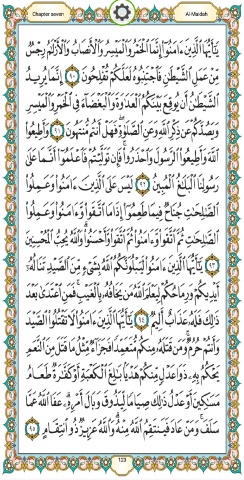 Chapter seven
Al-Maidah
يَٰٓأَيُّهَا ٱلَّذِينَ ءَامَنُوٓا۟ إِنَّمَا ٱلْخَمْرُ وَٱلْمَيْسِرُ وَٱلْأَنصَابُ وَٱلْأَزْلَٰمُ رِجْسٌ
مِّنْ عَمَلِ ٱلشَّيْطَٰنِ فَٱجْتَنِبُوهُ لَعَلَّكُمْ تُفْلِحُونَ ٩٠ إِنَّمَا يُرِيدُ
ٱلشَّيْطَٰنُ أَن يُوقِعَ بَيْنَكُمُ ٱلْعَدَٰوَةَ وَٱلْبَغْضَآءَ فِى ٱلْخَمْرِ وَٱلْمَيْسِرِ
وَيَصُدَّكُمْ عَن ذِكْرِ ٱللَّهِ وَعَنِ ٱلصَّلَوٰةِ ۖ فَهَلْ أَنتُم مُّنتَهُونَ ٩١ وَأَطِيعُوا۟
ٱللَّهَ وَأَطِيعُوا۟ ٱلرَّسُولَ وَٱحْذَرُوا۟ ۚ فَإِن تَوَلَّيْتُمْ فَٱعْلَمُوٓا۟ أَنَّمَا عَلَىٰ
رَسُولِنَا ٱلْبَلَٰغُ ٱلْمُبِينُ ٩٢ لَيْسَ عَلَى ٱلَّذِينَ ءَامَنُوا۟ وَعَمِلُوا۟
ٱلصَّٰلِحَٰتِ جُنَاحٌ فِيمَا طَعِمُوٓا۟ إِذَا مَا ٱتَّقَوا۟ وَّءَامَنُوا۟ وَعَمِلُوا۟
ٱلصَّٰلِحَٰتِ ثُمَّ ٱتَّقَوا۟ وَّءَامَنُوا۟ ثُمَّ ٱتَّقَوا۟ وَّأَحْسَنُوا۟ ۗ وَٱللَّهُ يُحِبُّ ٱلْمُحْسِنِينَ
٩٣ يَٰٓأَيُّهَا ٱلَّذِينَ ءَامَنُوا۟ لَيَبْلُوَنَّكُمُ ٱللَّهُ بِشَىْءٍ مِّنَ ٱلصَّيْدِ تَنَالُهُۥٓ
أَيْدِيكُمْ وَرِمَاحُكُمْ لِيَعْلَمَ ٱللَّهُ مَن يَخَافُهُۥ بِٱلْغَيْبِ ۚ فَمَنِ ٱعْتَدَىٰ بَعْدَ
ذَٰلِكَ فَلَهُۥ عَذَابٌ أَلِيمٌ ٩٤ يَٰٓأَيُّهَا ٱلَّذِينَ ءَامَنُوا۟ لَا تَقْتُلُوا۟ ٱلصَّيْدَ
وَأَنتُمْ حُرُمٌ ۚ وَمَن قَتَلَهُۥ مِنكُم مُّتَعَمِّدًا فَجَزَآءٌ مِّثْلُ مَا قَتَلَ مِنَ ٱلنَّعَمِ
يَحْكُمُ بِهِۦ ذَوَا عَدْلٍ مِّنكُمْ هَدْيًۢا بَٰلِغَ ٱلْكَعْبَةِ أَوْ كَفَّٰرَةٌ طَعَامُ
مَسَٰكِينَ أَوْ عَدْلُ ذَٰلِكَ صِيَامًا لِّيَذُوقَ وَبَالَ أَمْرِهِۦ ۗ عَفَا ٱللَّهُ عَمَّا
سَلَفَ ۚ وَمَنْ عَادَ فَيَنتَقِمُ ٱللَّهُ مِنْهُ ۗ وَٱللَّهُ عَزِيزٌ ذُو ٱنتِقَامٍ ٩٥
123